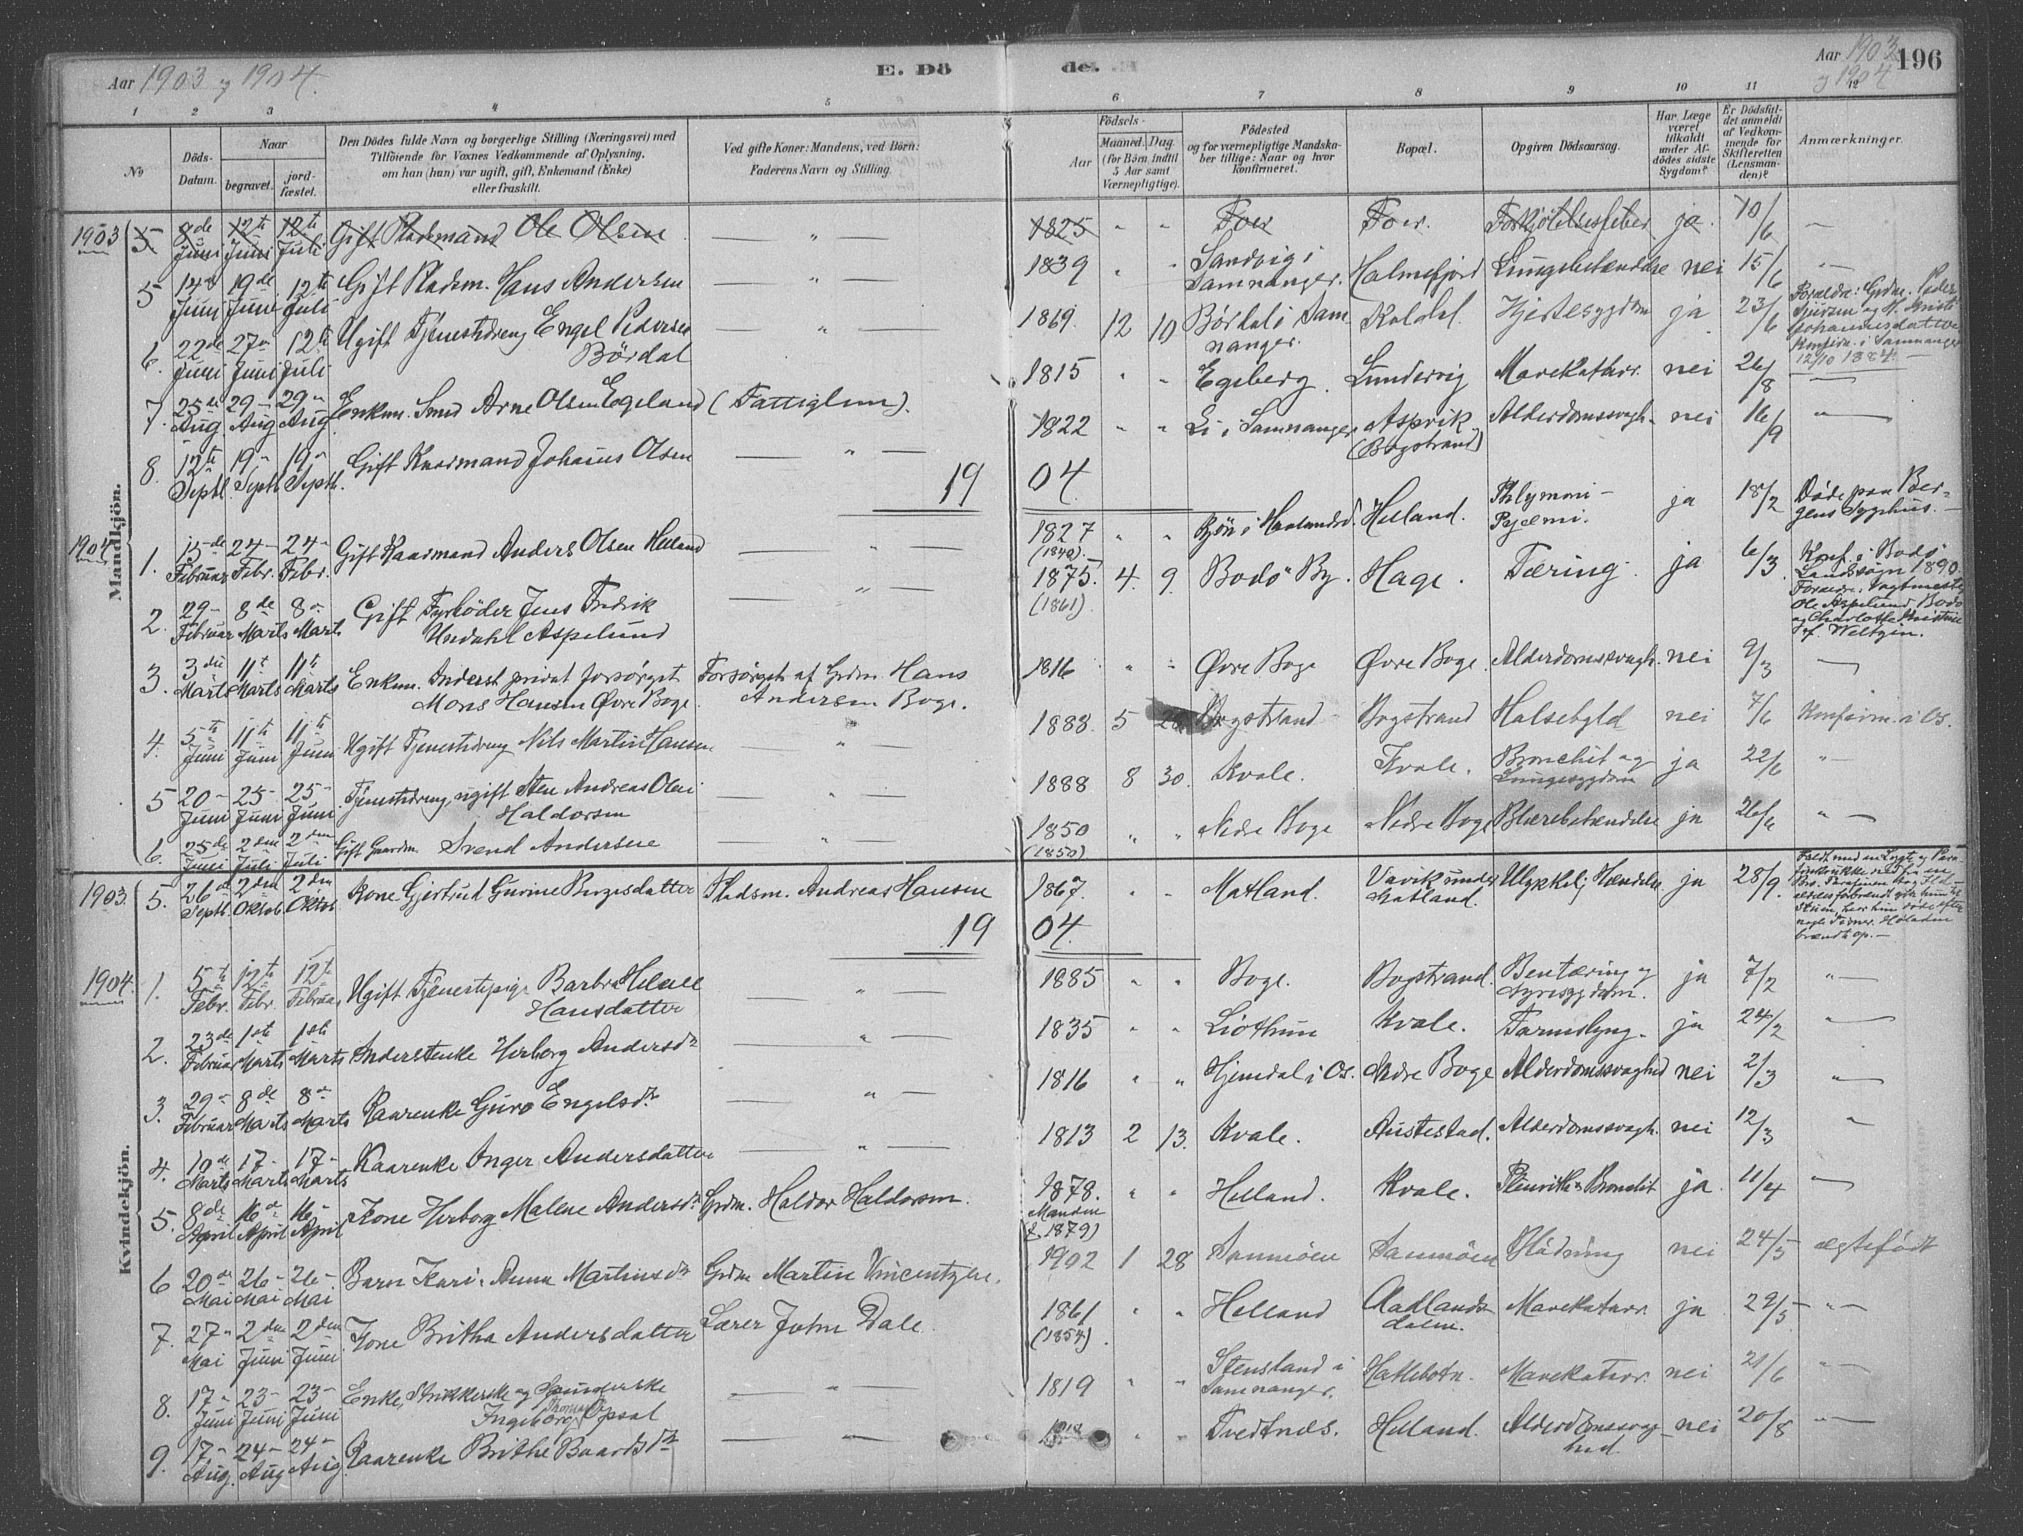 Aar 1903 og 1904.
E. Dö
de.
Aar 1903 og 1904
196
1 2 3 4 5 6 7 8 9 10 11 12
No
Döds-Datum.
Naar
begravet.
jord-fæstet.
Den Dödes fulde Navn og borgerlige Stilling (Næringsvei) med
Tilföiende for Voxnes Vedkommende af Oplysning,
om han (hun) var ugift, gift, Enkemand (Enke)
eller fraskilt.
Ved gifte Koner: Mandens, ved Börn:
Faderens Navn og Stilling.
Födsels-
Aar
Maaned. Dag.
(for Börn indtil
5 Aar samt
Værnepligtige).
Födested
og for værnepligtige Mandska-
ber tillige: Naar og hvor
konfirmeret.
Bopæl.
Opgiven Dödsaarsag.
Har Læge
været
tilkaldt
under Af-
dödes sidste
Sygdom?
Er Dödsfal-
det anmeldt
af Vedkom-
mende for
Skifteretten
(Lensman-
den)?
Anmærkninger.
Mandkjön.
1903 5 8de Juni 12te Juni 12te Juli Gift Pladsmand Ole Olsen — " — 1825 " " Toer Toer. ja 10/6 —
5 14de Juni 19de Juni 12te Juli Gift Pladsm. Hans Andersen — " — 1839 " " Sandvig i Samnanger. Halmefjord Lungebetændelse nei 15/6 —
6. 22de Juni 27de Juni 12te Juli Ugift Tjenestedreng Engel Pedersen Bördal — " — 1869. 12 10 Bördal i Samnanger. Koldal Hjertesygdom ja 23/6 Forældre: Grdm. Peder
Johannesdatter
Konfirm. i Samnanger
12/10 1884. —
7. 25de Aug. 29 Aug 29 Aug Enkem. Smed Arne Olsen Egeland (Fattiglem). 1815 " " Egeberg. Lundervig Mavekatarr. nei 26/8 — " —
8. 12te Septl. 19 Septl 19 Septl. Gift Kaarmand Johannes Olsen — " — 1822 " " Li i Samnanger. Aspvik (Bogstrand) Alderdomssvagh. nei 16/9 — " —
19 04.
1904 1. 15de Februar 24 Febr. 24 Febr. Gift Kaarmand Anders Olsen Helland — " — 1827 (1840) " " Helland. ja 18/2 Döde paa Ber-
gens Sygehus. —
2. 29 Februar 8de Marts 8 Marts Gift Fyrböder Jens Fredrik Uredahl Aspelund — " — 1875. (1861). 4. 9. Bodö By. Hage. Tæring. ja 6/3 Konf. i Bodö
Landssogn 1890.
Ole Aspelund, Bodö
og Charlotte Kristine
f. Weltzin.
3. 3die Marts 11te Marts 11te Marts Enkem. Inderst privat forsörget Mons Hansen Övre Boge Forsörget af Grdm. Hans Andersen Boge. 1816 " " Övre Boge Övre Boge. Alderdomssvagh. nei 9/3 —
4. 5te Juni 11te Juni 11te Juni Ugift Tjenestedreng Nils Martin Hansen — " — 1888. 5 28 Bogstrand Bogstrand Halsebyld nei 7/6 Konfirm. i Os.
5 20 Juni 25 Juni 25 Juni Tjenestedreng, ugift Sten Andreas Olai Haldorsen — " — 1888 8 30. Kvale. Kvale. Bronchit og Lungesygdom ja 22/6 " —
6. 25de Juni 2den Juli 2den Juli Gift Gaardm. Svend Andersen — " — 1850 (1850) " " Nedre Boge Nedre Boge Blærebetændelse ja 26/6 " —
Kvindekjön.
1903. 5. 26de Septl 2den Oktob 2den Oktob Kone Gjertrud Gurine Birgesdatter Pladsm. Andreas Hansen 1867. " " Hatland. Vavik under Hatland. Ulykkelig Hændelse ja 28/9.
brændt op. —
19 04.
1904. 1. 5te Febr. 12te Febr. 12te Februar Ugift Tjenestepige Barbra Helene Hansdatter — " — 1885 " " Boge. Bogstrand. Bentæring og Nyresygdom. ja 7/2 " —
2. 23de Februar 1ste Marts 1ste Marts Inderstenke Herborg Andersdtr — " — 1835 " " Liothun Kvale. Tarmslyng. ja 24/2 " —
3. 29 Februar 8de Marts 8de Marts Kaarenke Guro Engelsdtr — " — 1816 " " Hjemdal i Os. Nedre Boge Alderdomssvaghed nei 2/3 " —
4. 10de Marts 17 Marts 17 Marts Kaarenke Inger Andersdatter — " — 1813 2 13. Kvale. Austestad. Alderdomssvagh. nei 12/3 "
5. 8de April 16de April 16 April Kone Herborg Malene Andersdtr Grdm. Haldor Haldorsen. 1878. Manden (f. 1879) " " Helland. Kvale. Pleurit & Bronchit ja 11/4 —
6 20de Mai 26 Mai 26 Mai Barn Kari Anna Martinsdtr Grdm Martin Vincentzen. 1902 1 28 Samnöen Samnöen nei 24/5 ægtefödt
7. 27 Mai 2den Juni 2den Juni Kone Britha Andersdatter Lærer John Dale. 1861 (1854). " " Helland Aadlandsdalen. Mavekatarr. ja 29/5 " —
8. 17 Juni 23 Juni 23 Juni Enke, Strikkerske og Spinderske Ingeborg Thomasdtr Opsal — " — 1819 " " Stensland i Samnanger. Hatlebotn. Mavekatarr. nei 21/6 " —
9. 17 Aug. 24 Aug 24 Aug. Kaarenke Brithe Baardsdtr — " — 1818 " " Tvedtnes. Helland. Alderdomssvaghed nei 20/8 " —